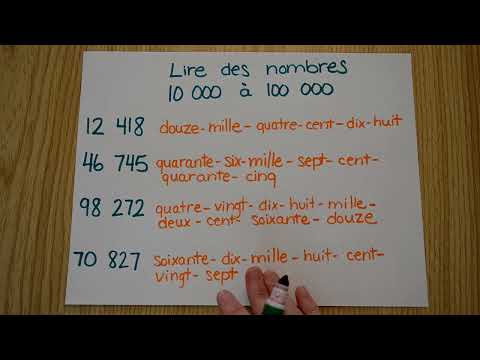 Lire des nombres
10 000 à 100 000
12 418 douze-mille-quatre-cent-dix-huit
46 745 quarante-six-mille-sept-cent-
quarante-cinq
98 272 quatre-vingt-dix-huit-mille-
deux-cent-soixante-douze
70 827 soixante-dix-mille-huit-cent-
vingt-sept